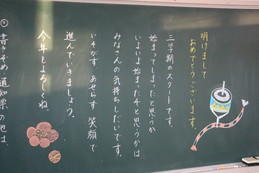 明けまして
おめでとうございます。
三学期のスタートです。
始まってしまったと思うか
いよいよ始まったぞと思うかは
みなさんの気持ちしだいです。
いそがず あせらず 笑顔で
進んでいきましょう。
今年もよろしくね。
書きぞめ 通知票の他は、